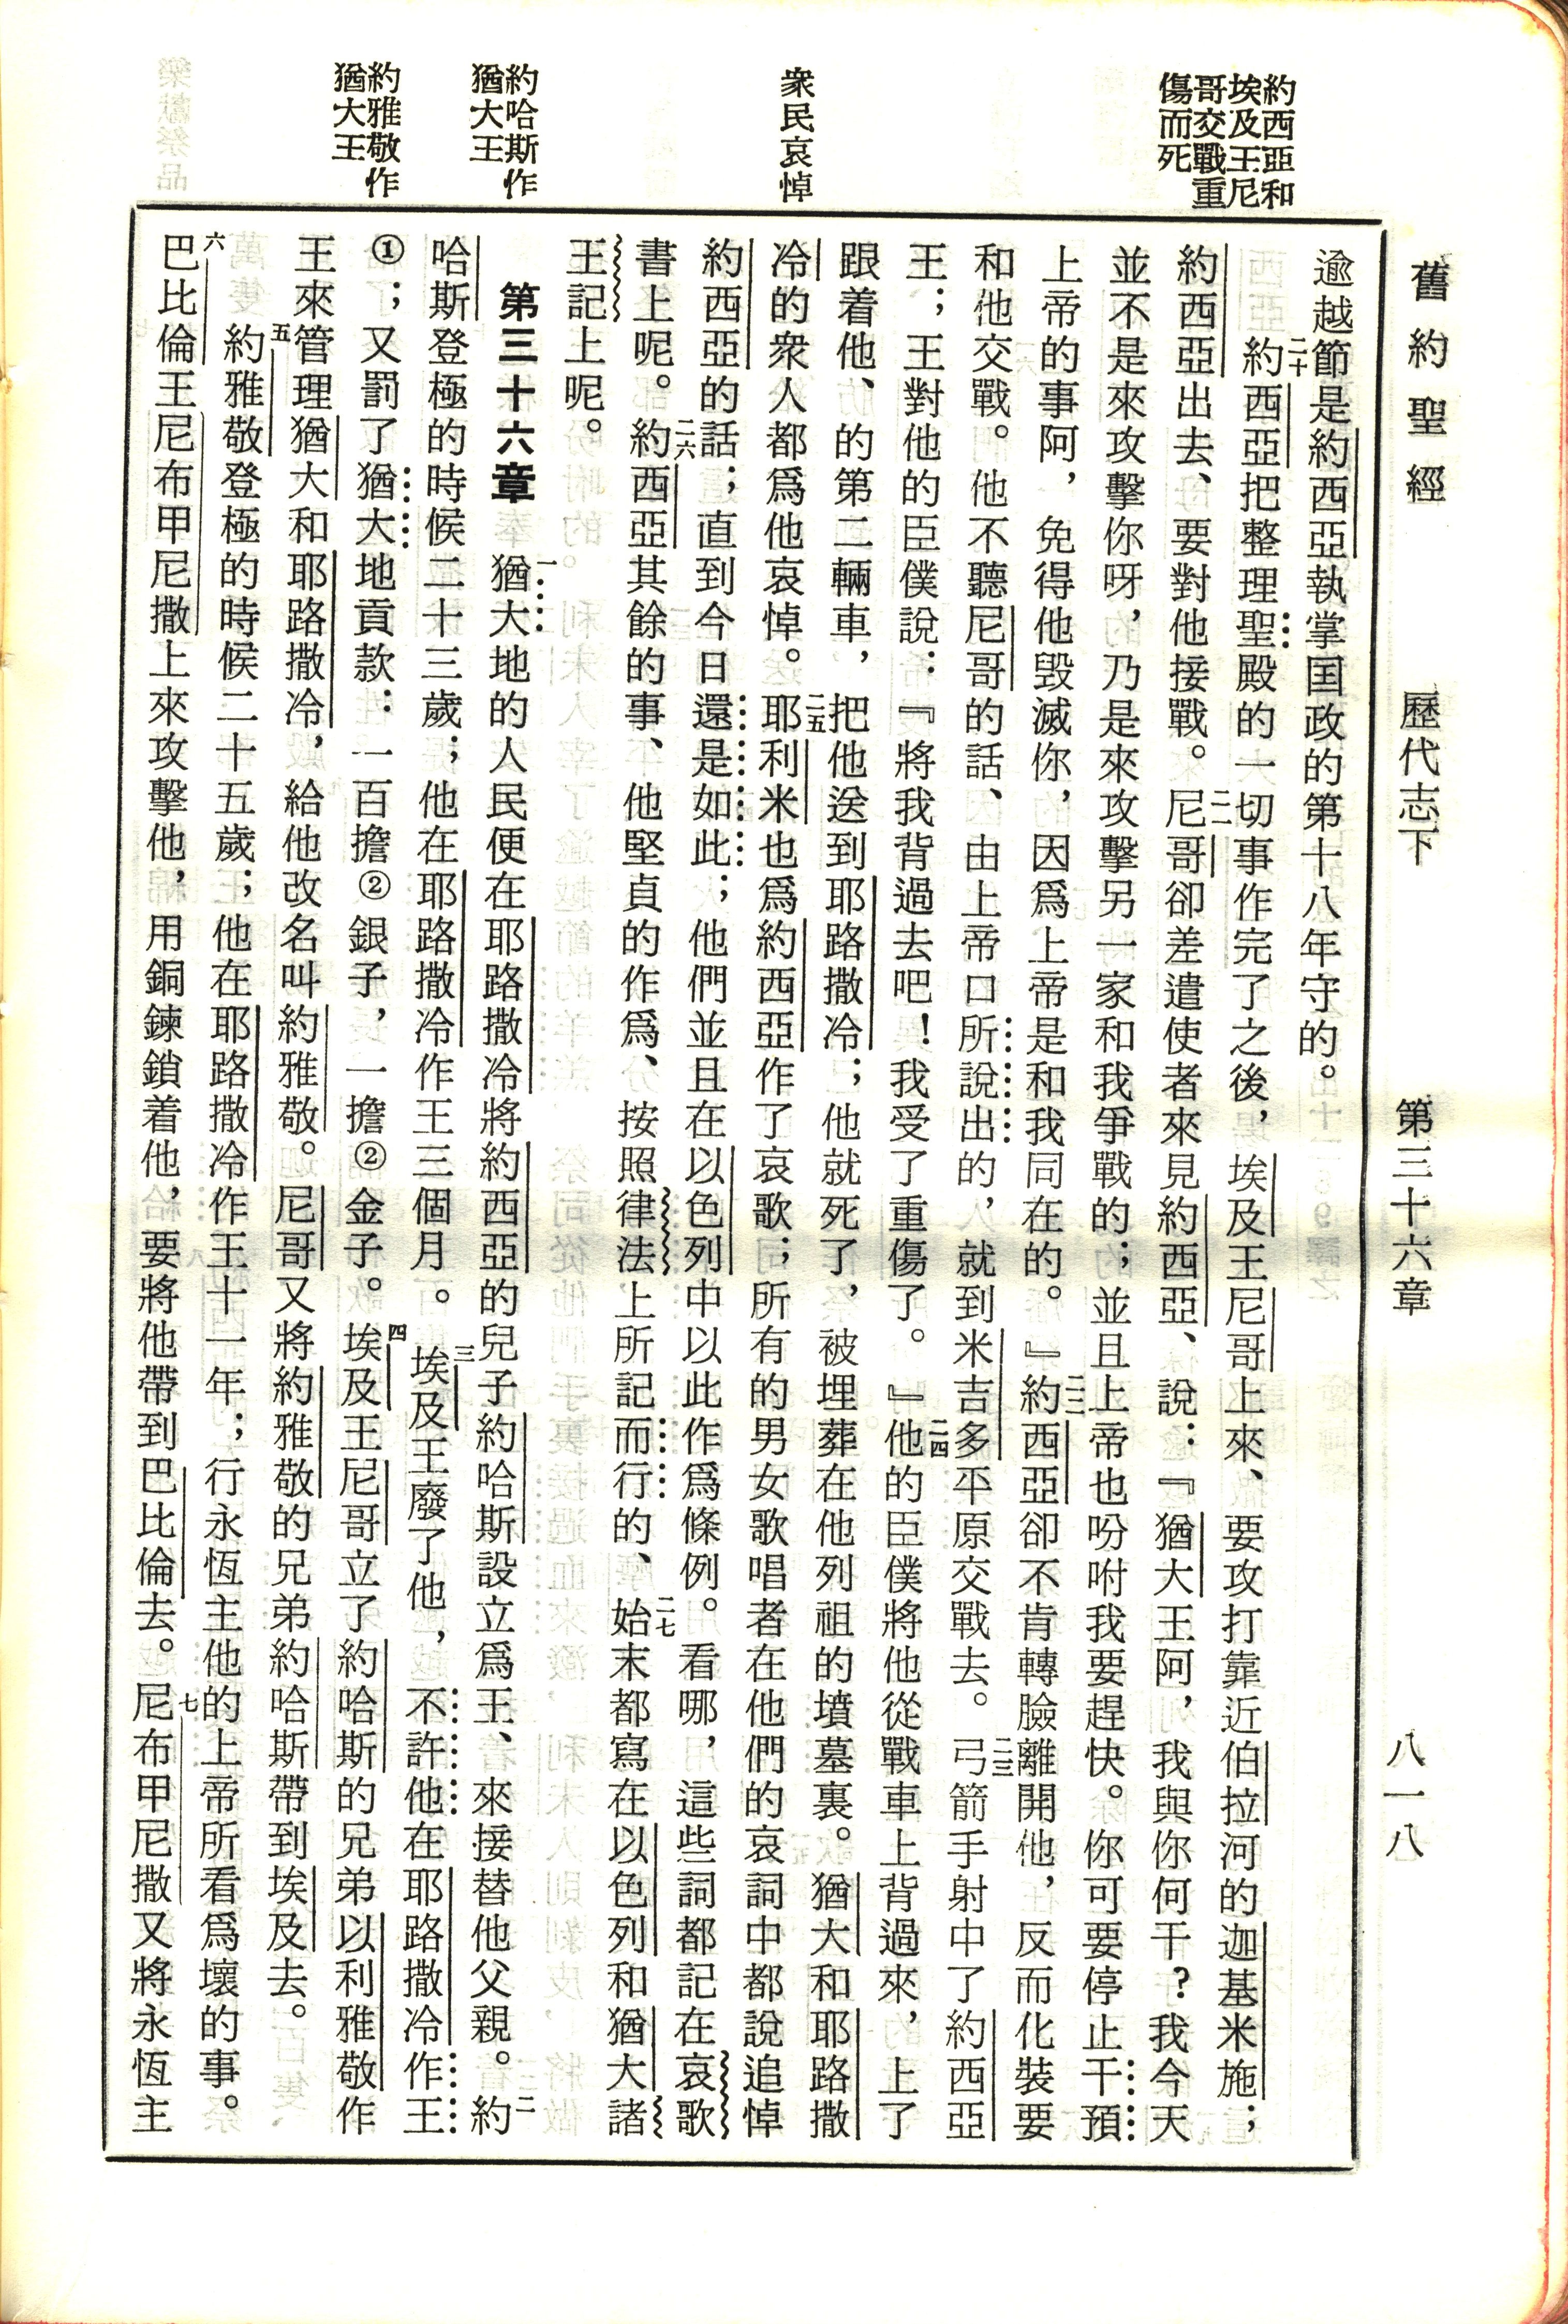 舊約聖經　歷代志下　第三十六章　八一八
約西亞和
埃及王尼
哥交戰重
傷而死
衆民哀悼
約哈斯作
猶大王
約雅敬作
猶大王
逾越節是約西亞執掌国政的第十八年守的。
二十約西亞把整理聖殿的一切事作完了之後，埃及王尼哥上來、要攻打靠近伯拉河的迦基米施；
約西亞出去、要對他接戰。二一尼哥卻差遣使者來見約西亞、說：『猶大王阿，我與你何干？我今天
並不是來攻擊你呀，乃是來攻擊另一家和我爭戰的；並且上帝也吩咐我要趕快。你可要停止干預
上帝的事阿，免得他毀滅你，因爲上帝是和我同在的。』二二約西亞卻不肯轉臉離開他，反而化裝要
和他交戰。他不聽尼哥的話、由上帝口所說出的，就到米吉多平原交戰去。二三弓箭手射中了約西亞
王；王對他的臣僕說：『將我背過去吧！我受了重傷了。』二四他的臣僕將他從戰車上背過來，上了
跟着他、的第二輛車，把他送到耶路撒冷；他就死了，被埋葬在他列祖的墳墓裏。猶大和耶路撒
冷的衆人都爲他哀悼。二五耶利米也爲約西亞作了哀歌；所有的男女歌唱者在他們的哀詞中都說追悼
約西亞的話；直到今日還是如此；他們並且在以色列中以此作爲條例。看哪，這些詞都記在哀歌
書上呢。二六約西亞其餘的事、他堅貞的作爲、按照律法上所記而行的、二七始末都寫在以色列和猶大諸
王記上呢。
第三十六章　一猶大地的人民便在耶路撒冷將約西亞的兒子約哈斯設立爲王、來接替他父親。二約
哈斯登極的時候二十三歲；他在耶路撒冷作王三個月。三埃及王廢了他，不許他在耶路撒冷作王
①；又罰了猶大地貢款：一百擔②銀子，一擔②金子。四埃及王尼哥立了約哈斯的兄弟以利雅敬作
王來管理猶大和耶路撒冷，給他改名叫約雅敬。尼哥又將約雅敬的兄弟約哈斯帶到埃及去。
五約雅敬登極的時候二十五歲；他在耶路撒冷作王十一年；行永恆主他的上帝所看爲壞的事。
六巴比倫王尼布甲尼撒上來攻擊他，用銅鍊鎖着他，要將他帶到巴比倫去。七尼布甲尼撒又將永恆主